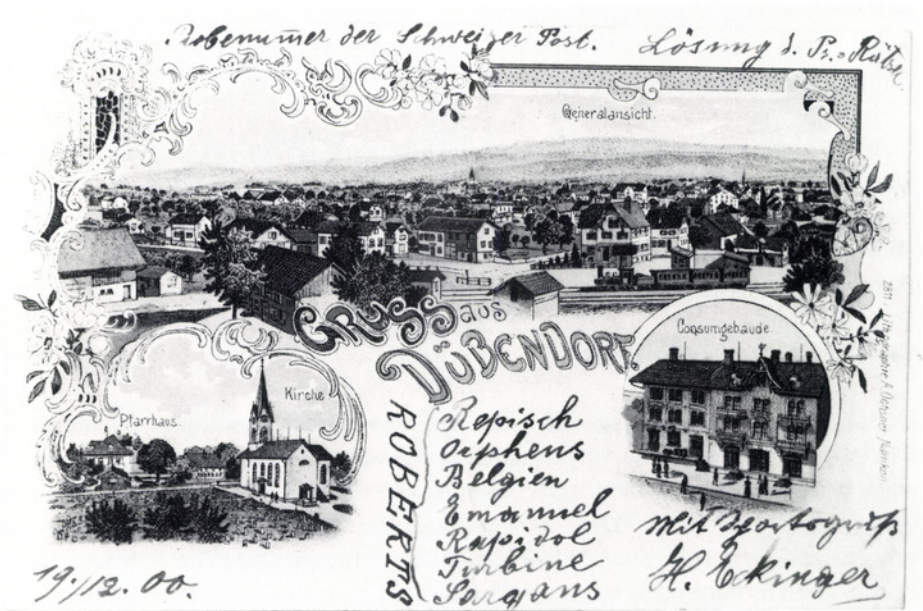 Probenummer der Schweizer Post. Lösung d. Pr.-Rätsel
Generalansicht.
GRUSS aus
DÜBENDORF
Consumgebäude.
Kirche
Pfarrhaus.
ROBERTS
Repisch
Orphens
Belgien
Emanuel
Rapidol
Turbine
Sargans
Mit Sportsgruß
H. Eckinger
19./12. 00.
2811 Lithographie